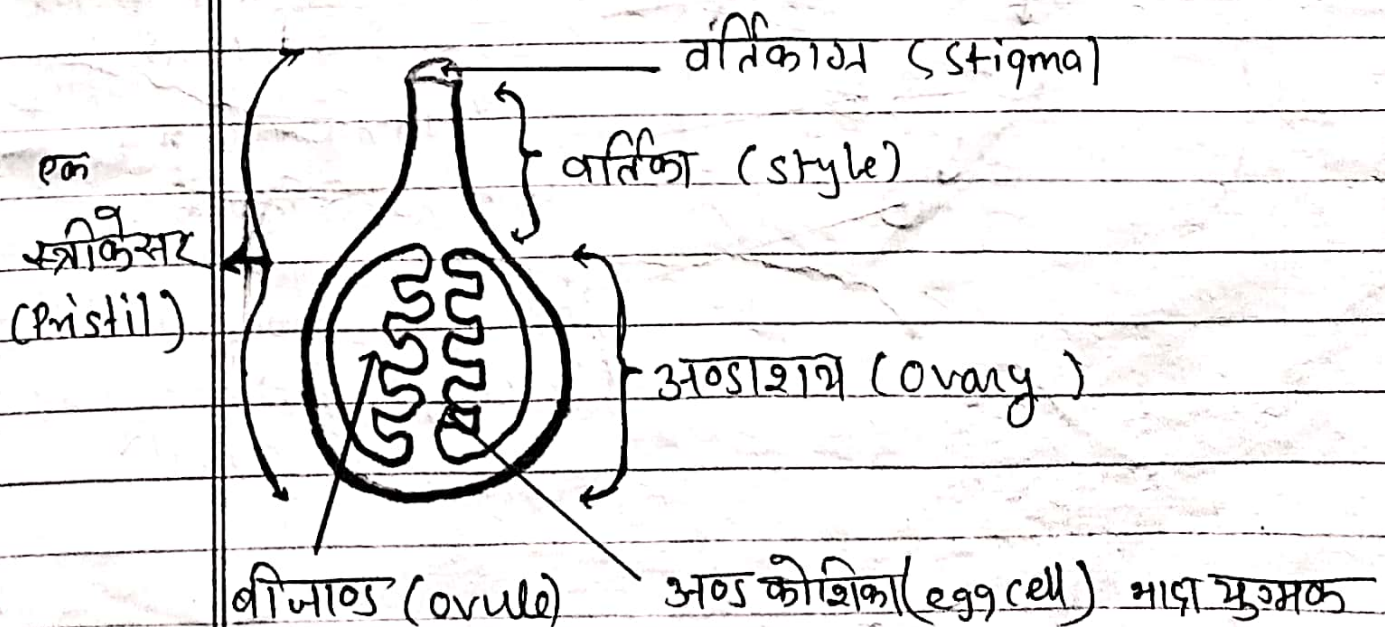 वर्तिकाग्र (Stigma)
वर्तिका (style)
एक
स्त्रीकेसर
(Pristil)
अण्डाशय (Ovary)
बीजाण्ड (ovule)
अण्ड कोशिका (egg cell) मादा युग्मक